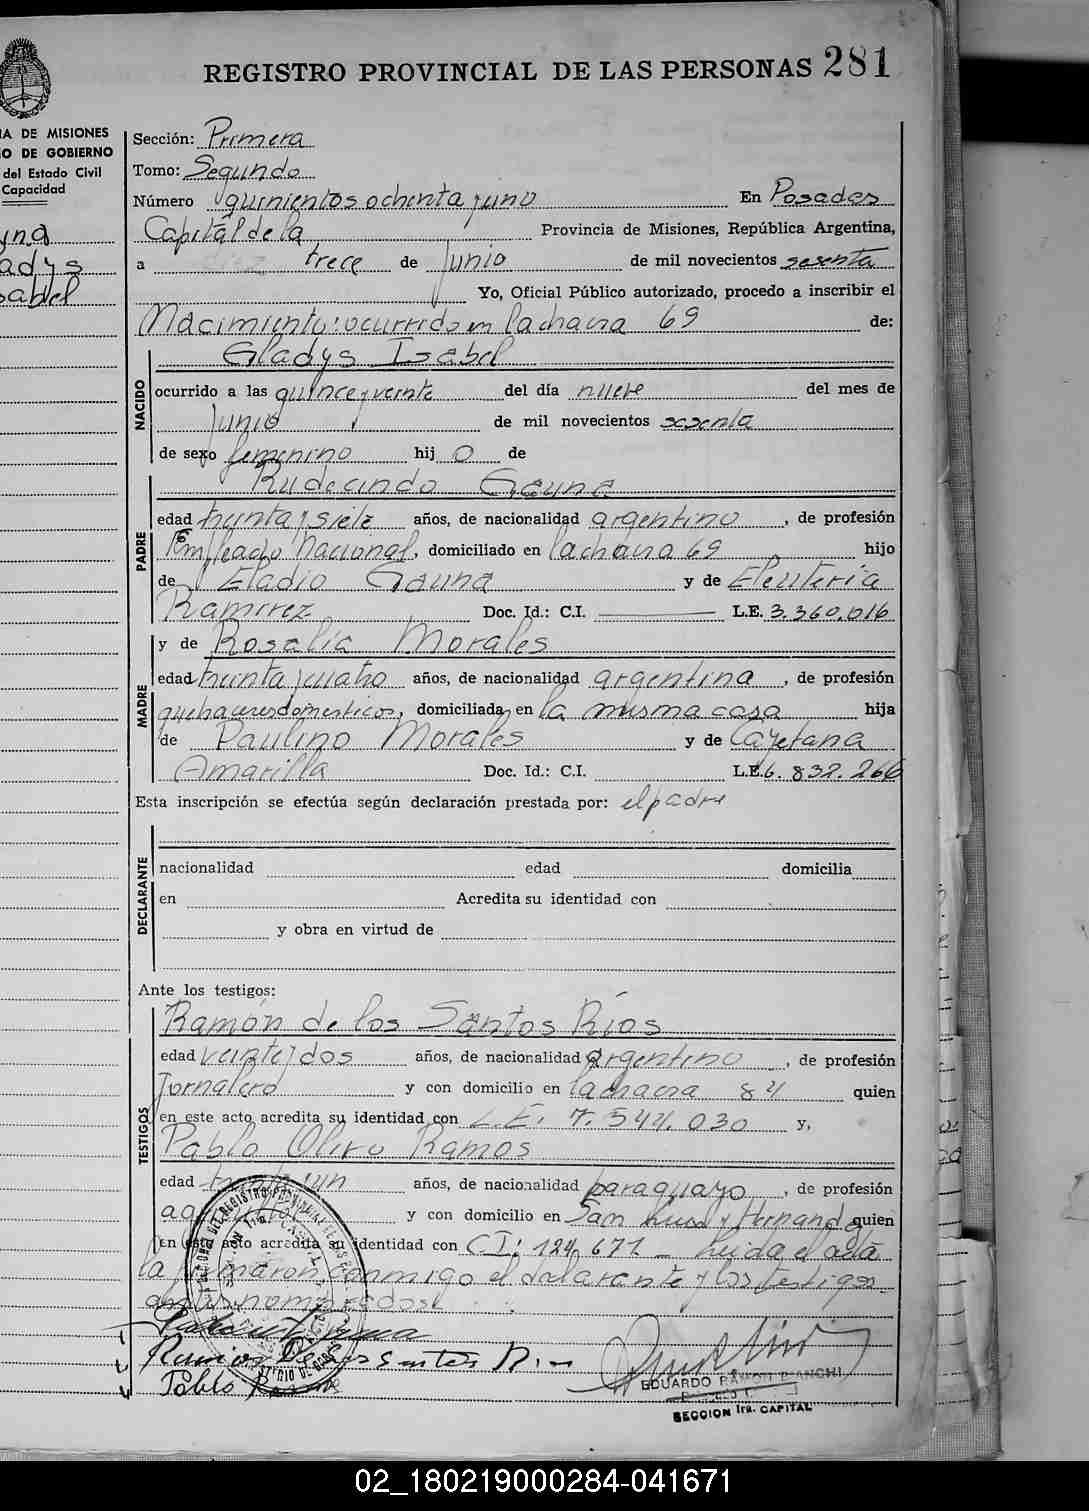 REGISTRO PROVINCIAL DE LAS PERSONAS 281
IA DE MISIONES
IO DE GOBIERNO
del Estado Civil
Capacidad
una
adys
sabel
Sección: Primera
Tomo: Segundo
Número quinientos ochenta y uno En Posadas
Capital de la Provincia de Misiones, República Argentina,
a trece de Junio de mil novecientos sesenta
Yo, Oficial Público autorizado, procedo a inscribir el
Nacimiento: ocurrido en la chacra 69 de:
Gladys Isabel
NACIDO
ocurrido a las quince y veinte del día nueve del mes de
Junio de mil novecientos sesenta
de sexo femenino hij o de
Rudecindo Gauna
PADRE
edad treinta y siete años, de nacionalidad argentino, de profesión
Empleado Nacional, domiciliado en la chacra 69 hijo
de Eladio Gauna y de Eleuteria
Ramirez Doc. Id.: C.I. L.E. 3.360.016
y de Rosalia Morales
MADRE
edad treinta y cuatro años, de nacionalidad argentina, de profesión
quehaceres domesticos, domiciliada en la misma casa hija
de Paulino Morales y de Cayetana
Amarilla Doc. Id.: C.I. L.E. 6.832.266
Esta inscripción se efectúa según declaración prestada por: el padre
DECLARANTE
nacionalidad edad domicilia
en Acredita su identidad con
y obra en virtud de
Ante los testigos:
TESTIGOS
Ramón de los Santos Ríos
edad veinte y dos años, de nacionalidad argentino, de profesión
Jornalero y con domicilio en la chacra 84 quien
en este acto acredita su identidad con L.E. 7.544.030 y,
Pablo Olivo Ramos
edad treinta y un años, de nacionalidad paraguayo, de profesión
y con domicilio en San Luis y Hernandez quien
en este acto acredita su identidad con C.I: 124,671 - Leida el acta
la firmaron conmigo el declarante y los testigos
nombrados
Ramon De los Santos Rios
Pablo Ramos
EDUARDO RAMON BIANCHI
SECCION 1ra. CAPITAL
02_180219000284-041671